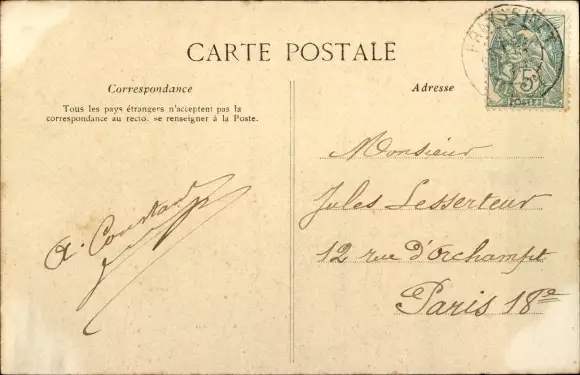 CARTE POSTALE
Correspondance
Tous les pays étrangers n'acceptent pas la
correspondance au recto. se renseigner à la Poste.
A. Constant
Adresse
5
POSTES
Monsieur
Jules Lesserteur
12 rue d'Orchampt
Paris 18e